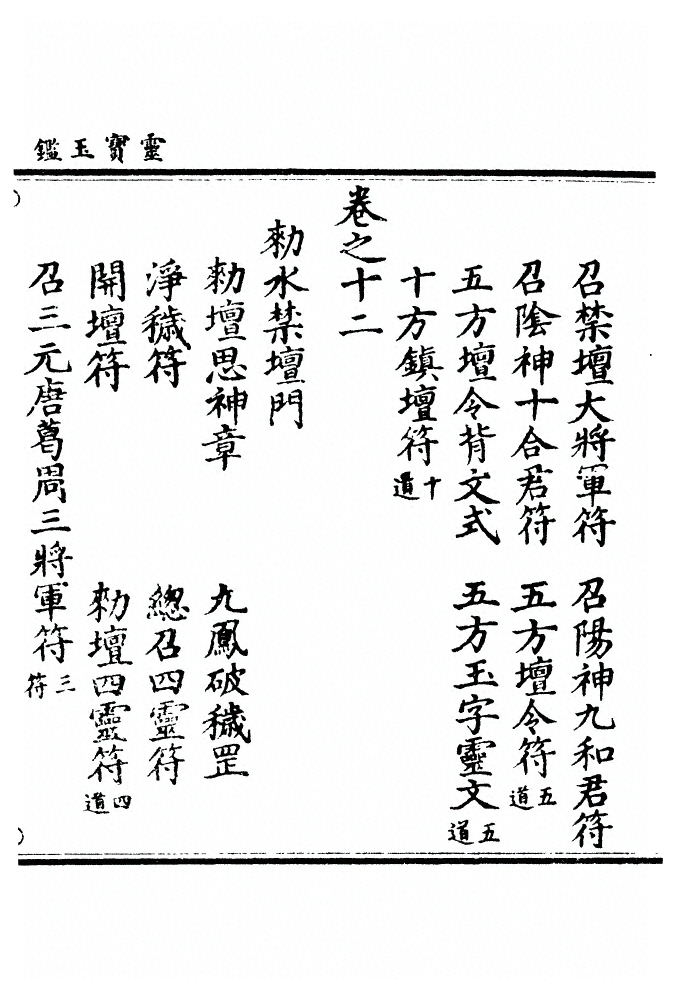 靈寶玉鑑
召禁壇大將軍符　召陽神九和君符
召陰神十合君符　五方壇令符五道
五方壇令背文式　五方玉字靈文五道
十方鎮壇符十道
卷之十二
勑水禁壇門
勑壇思神章　九鳳破穢罡
淨穢符　總召四靈符
開壇符　勑壇四靈符四道
召三元唐葛周三將軍符三符